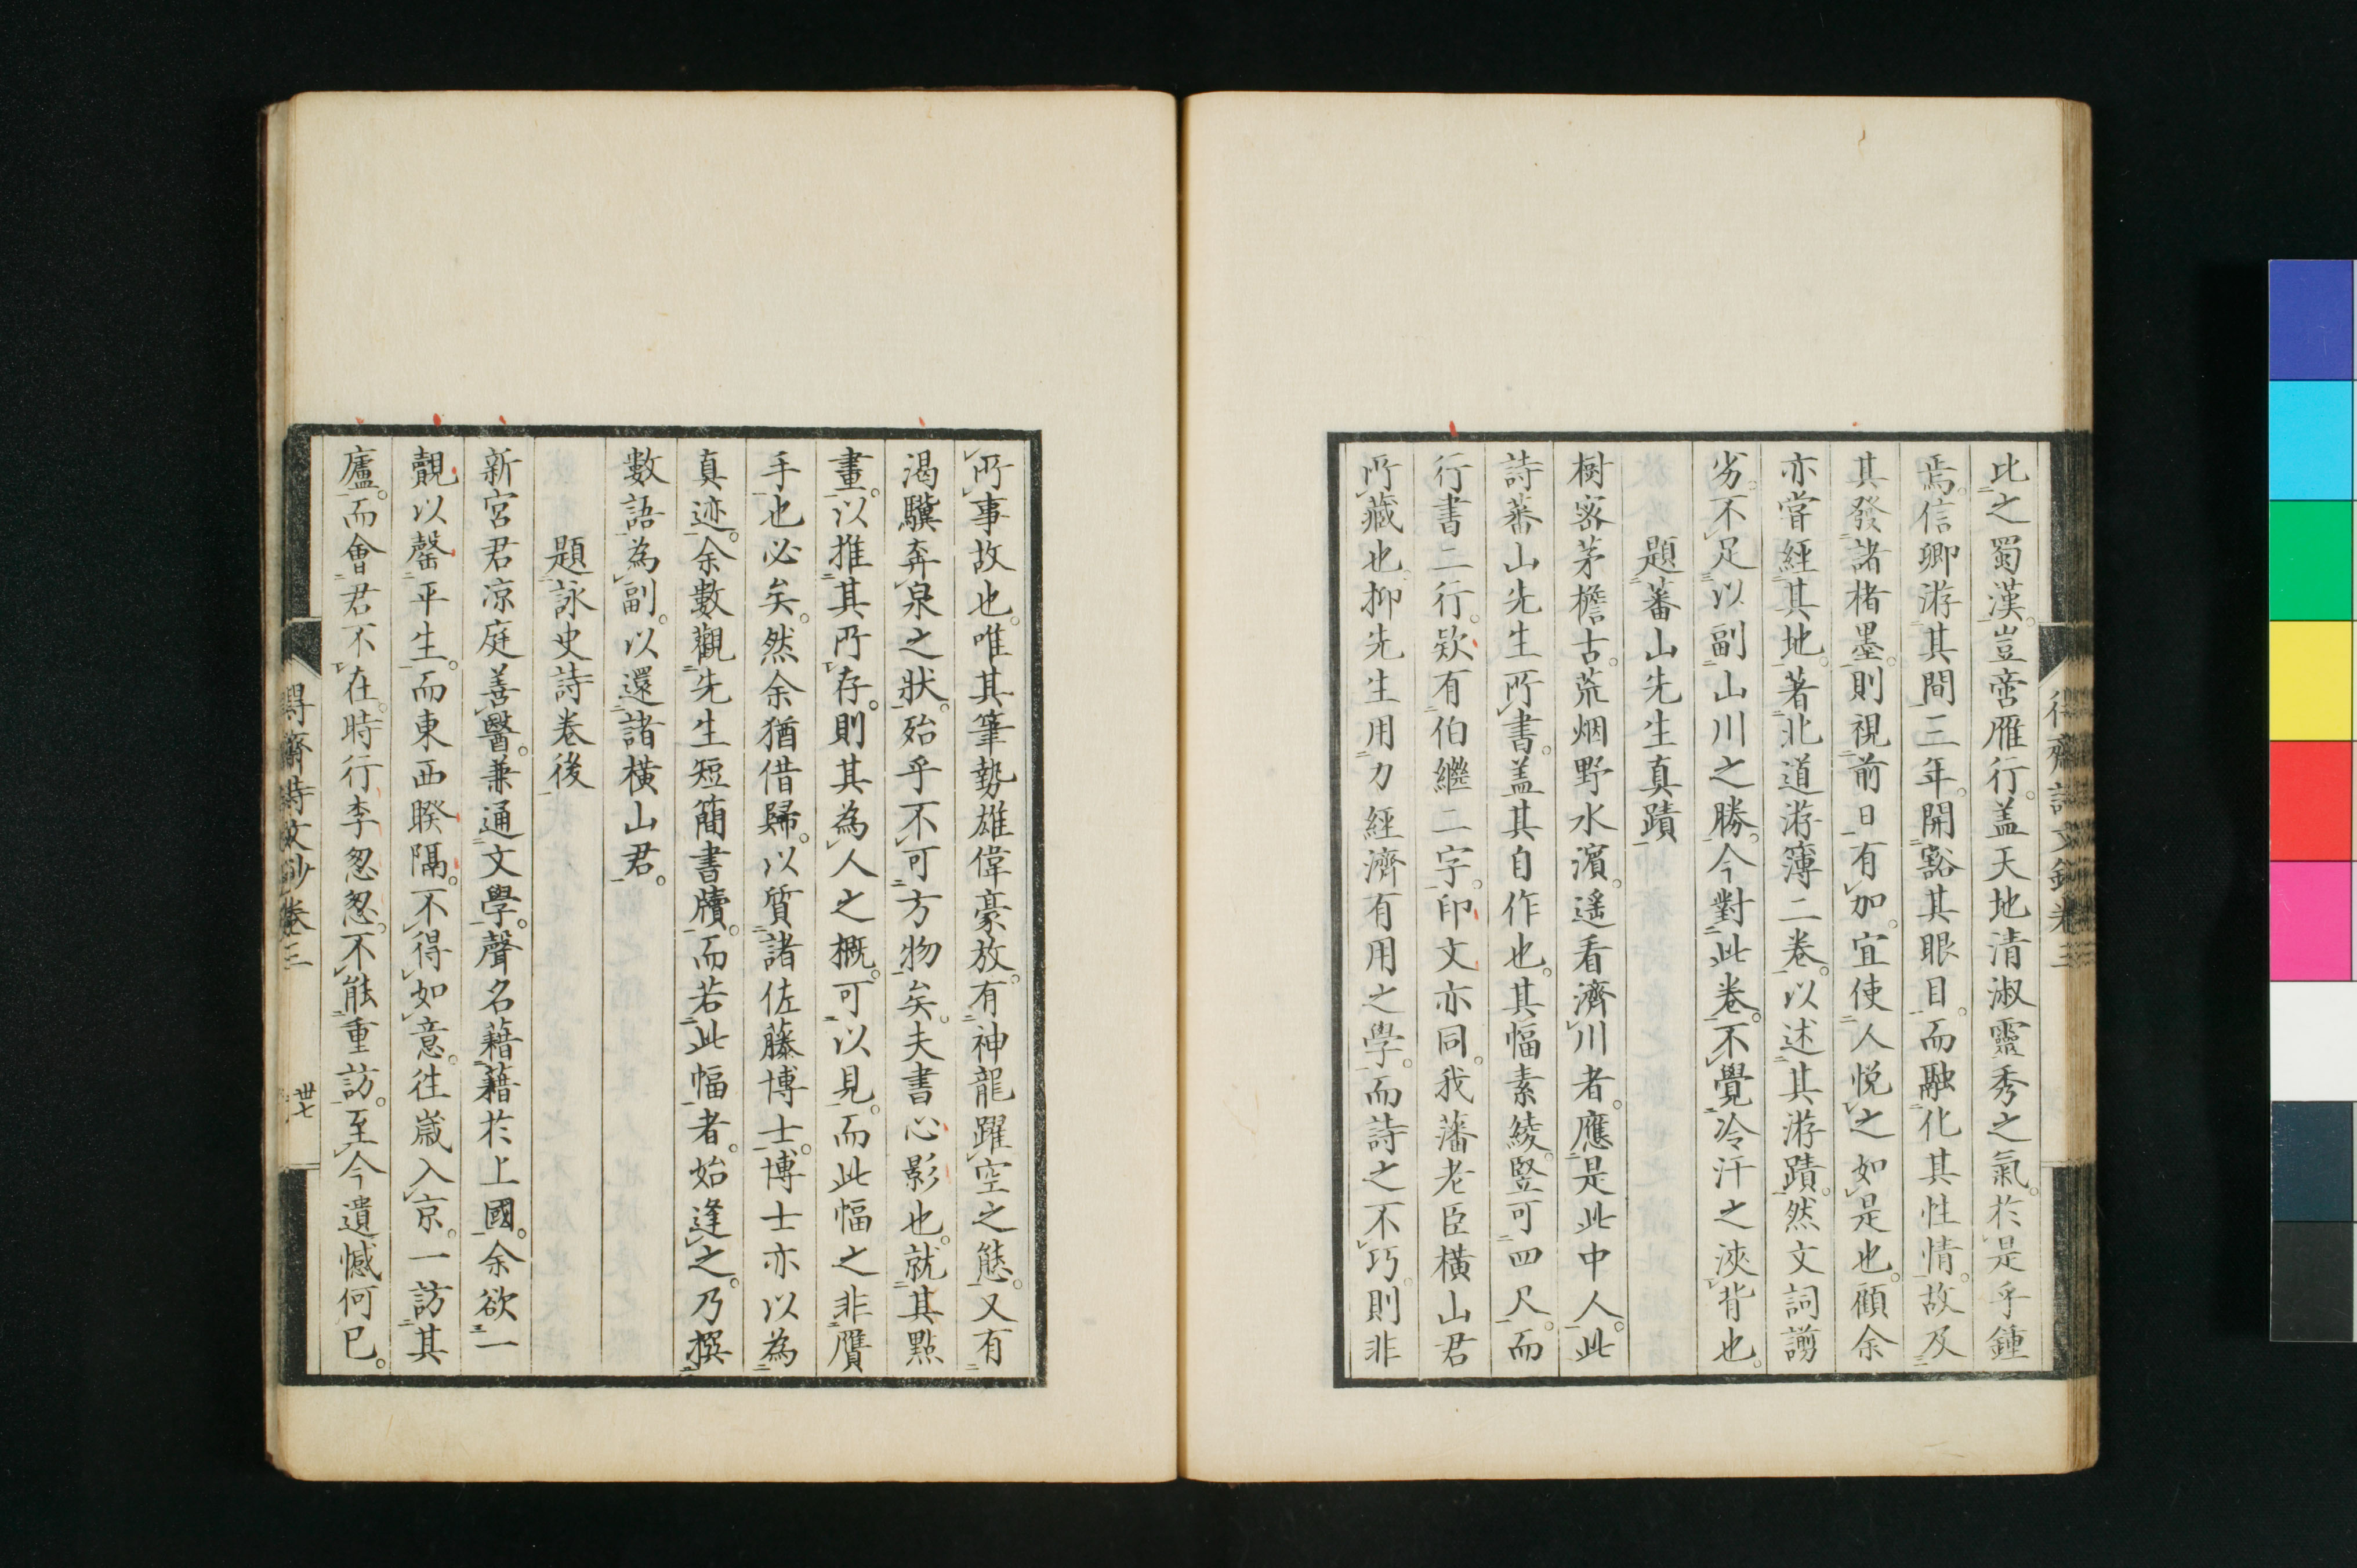 比之蜀漢。豈啻雁行。盖天地清淑靈秀之氣。於是乎鍾
焉。信卿游其間三年。開豁其眼目。而融化其性情。故及
其發諸楮墨。則視前日有加。宜使人悦之如是也。顧余
亦嘗經其地。著北道游簿二卷。以述其游蹟。然文詞謭
劣。不足以副山川之勝。今對此卷。不覺冷汗之浹背也。
題蕃山先生真蹟
樹密茅檐古。荒烟野水濱。遥看濟川者。應是此中人。此
詩蕃山先生所書。盖其自作也。其幅素綾。竪可四尺。而
行書二行。欵有伯繼二字。印文亦同。我藩老臣橫山君
所藏也抑先生用力經濟有用之學。而詩之不巧。則非
所事故也。唯其筆勢雄偉豪放。有神龍躍空之態。又有
渴驥奔泉之狀。殆乎不可方物矣。夫書心影也。就其點
畫。以推其所存。則其為人之概。可以見。而此幅之非贋
手也必矣。然余猶借歸。以質諸佐藤博士。博士亦以為
真迹。余數觀先生短簡書牘。而若此幅者。始逢之。乃撰
數語為副。以還諸橫山君。
題詠史詩卷後
新宮君凉庭善醫。兼通文學。聲名藉藉於上國。余欲一
覿以罄平生。而東西暌隔。不得如意。往歳入京。一訪其
廬。而會君不在。時行李怱怱。不能重訪。至今遺憾何已。
得齋詩文鈔卷三
丗七